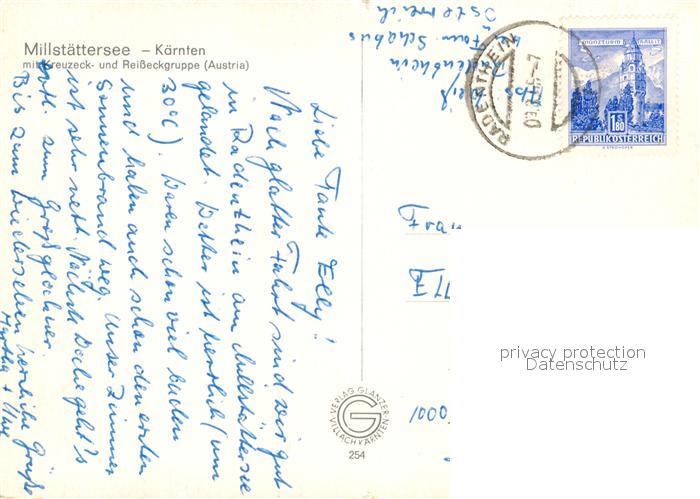 Millstättersee – Kärnten
mit Kreuzeck- und Reißeckgruppe (Austria)
Liebe Tante Elly!
Nach glatter Fahrt sind wir gut
in Radenthein am Millstättersee
gelandet. Wetter ist herrlich (um
30°C). Waren schon viel baden
und haben auch schon den ersten
Sonnenbrand weg. Unser Zimmer
ist sehr nett. Nächste Woche geht's
evtl. zum Großglockner.
Bis zum Wiedersehen herzliche Grüße
Hertha +
Fam. Schabus
Radenthein
Österreich
RADENTHEIN
MÜNZTURM
1S
1.80
REPUBLIK ÖSTERREICH
1000
VERLAG GLANZER
VILLACH KÄRNTEN
G
254
privacy protection
Datenschutz